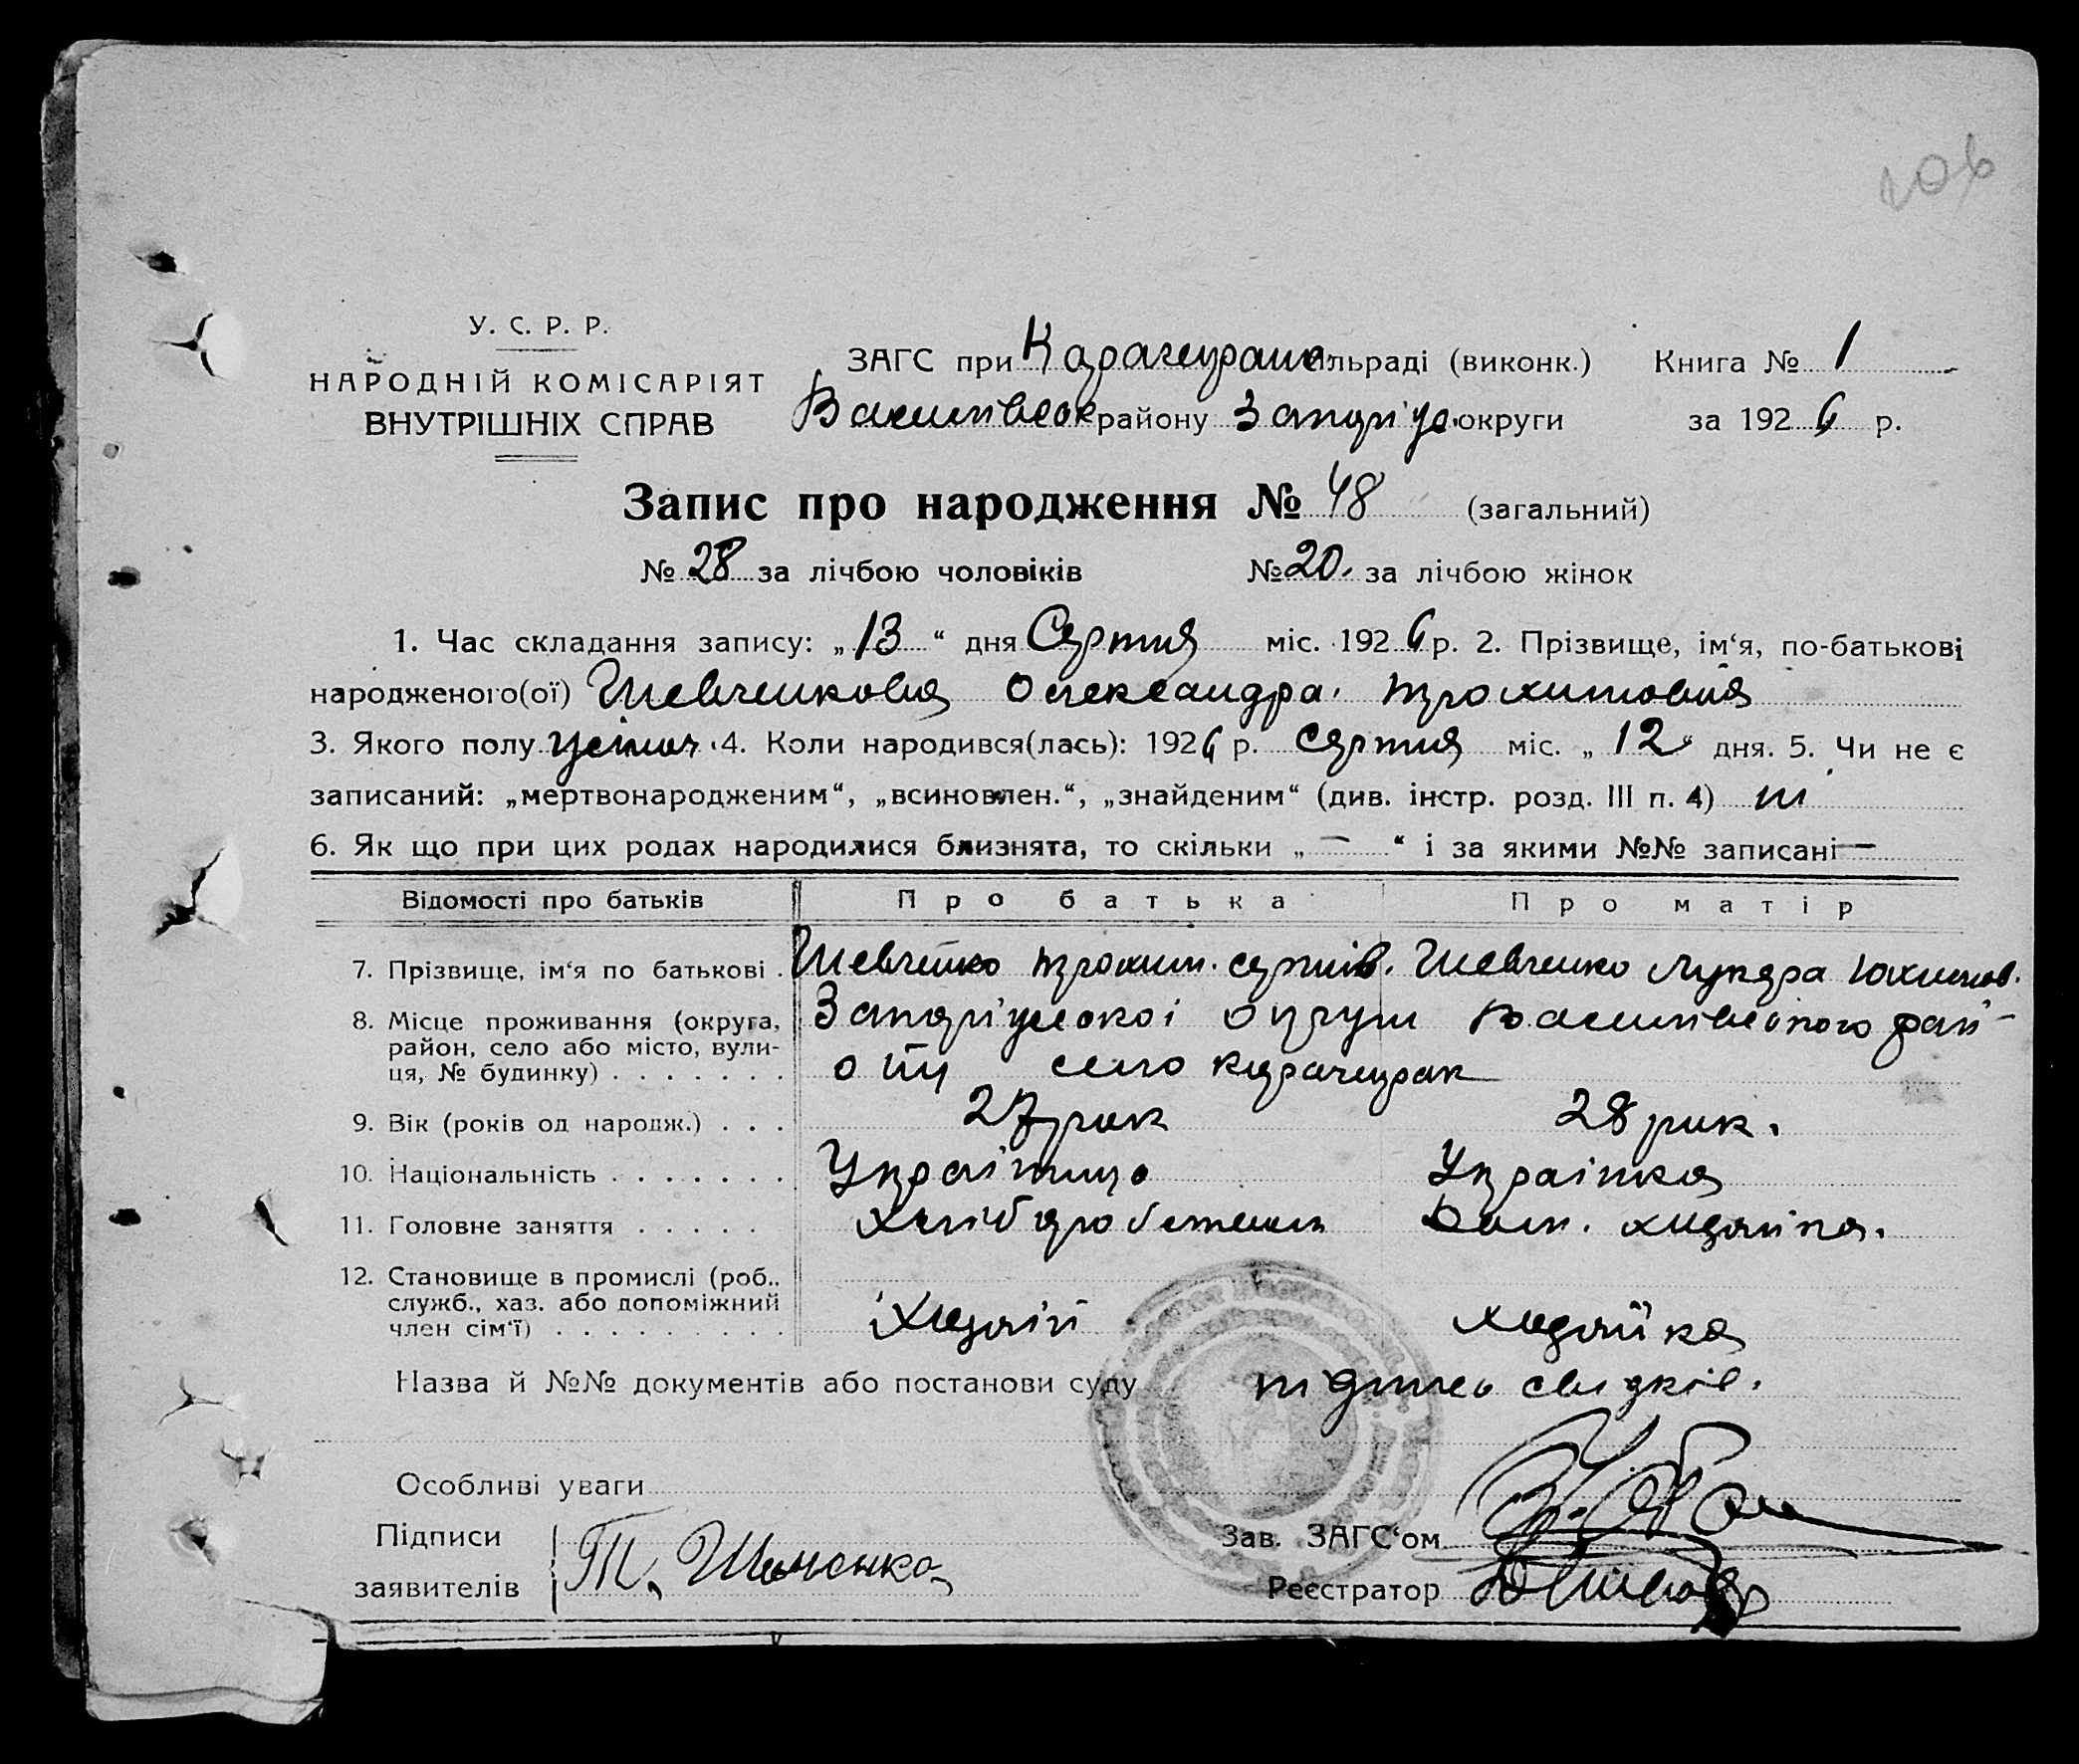 206
У. С. Р. Р.
НАРОДНІЙ КОМІСАРІЯТ
ВНУТРІШНІХ СПРАВ
ЗАГС при Карачекрак. сільраді (виконк.) Книга № 1
Василівськ району Запоріз. округи за 1926 р.
Запис про народження № 48 (загальний)
№ 28 за лічбою чоловіків № 20. за лічбою жінок
1. Час складання запису: „13“ дня Серпня міс. 1926 р. 2. Прізвище, ім‘я, по-батькові
народженого(ої) Шевченкова Олександра Трохимовна
3. Якого полу 4. Коли народився(лась): 1926 р. Серпня міс. „12“ дня. 5. Чи не є
записаний: „мертвонародженим“, „всиновлен.“, „знайденим“ (див. інстр. розд. III п. 4) ні
6. Як що при цих родах народилися близнята, то скільки „—“ і за якими №№ записані —
Відомості про батьків Про батька Про матір
7. Прізвище, ім‘я по батькові . Шевченко Трохим. Шевченко
8. Місце проживання (округа, район, село або місто, вулиця, № будинку) . . . . . . . Запорізської округи Василівського рай-
ону село Карачекрак
9. Вік (років од народж.) . . . 27 рик 28 рик.
10. Національність . . . . . . . Українець Українка
11. Головне заняття . . . . . Хліборобством Дом. хазяйка.
12. Становище в промислі (роб.. служб., хаз. або допоміжний член сім‘ї) . . . . . . . . . Хазяїн хазяйка
Назва й №№ документів або постанови суду підпись свидків.
Особливі уваги
Підписи
заявителів Т. Шевченко
Зав. ЗАГС‘ом
Реєстратор